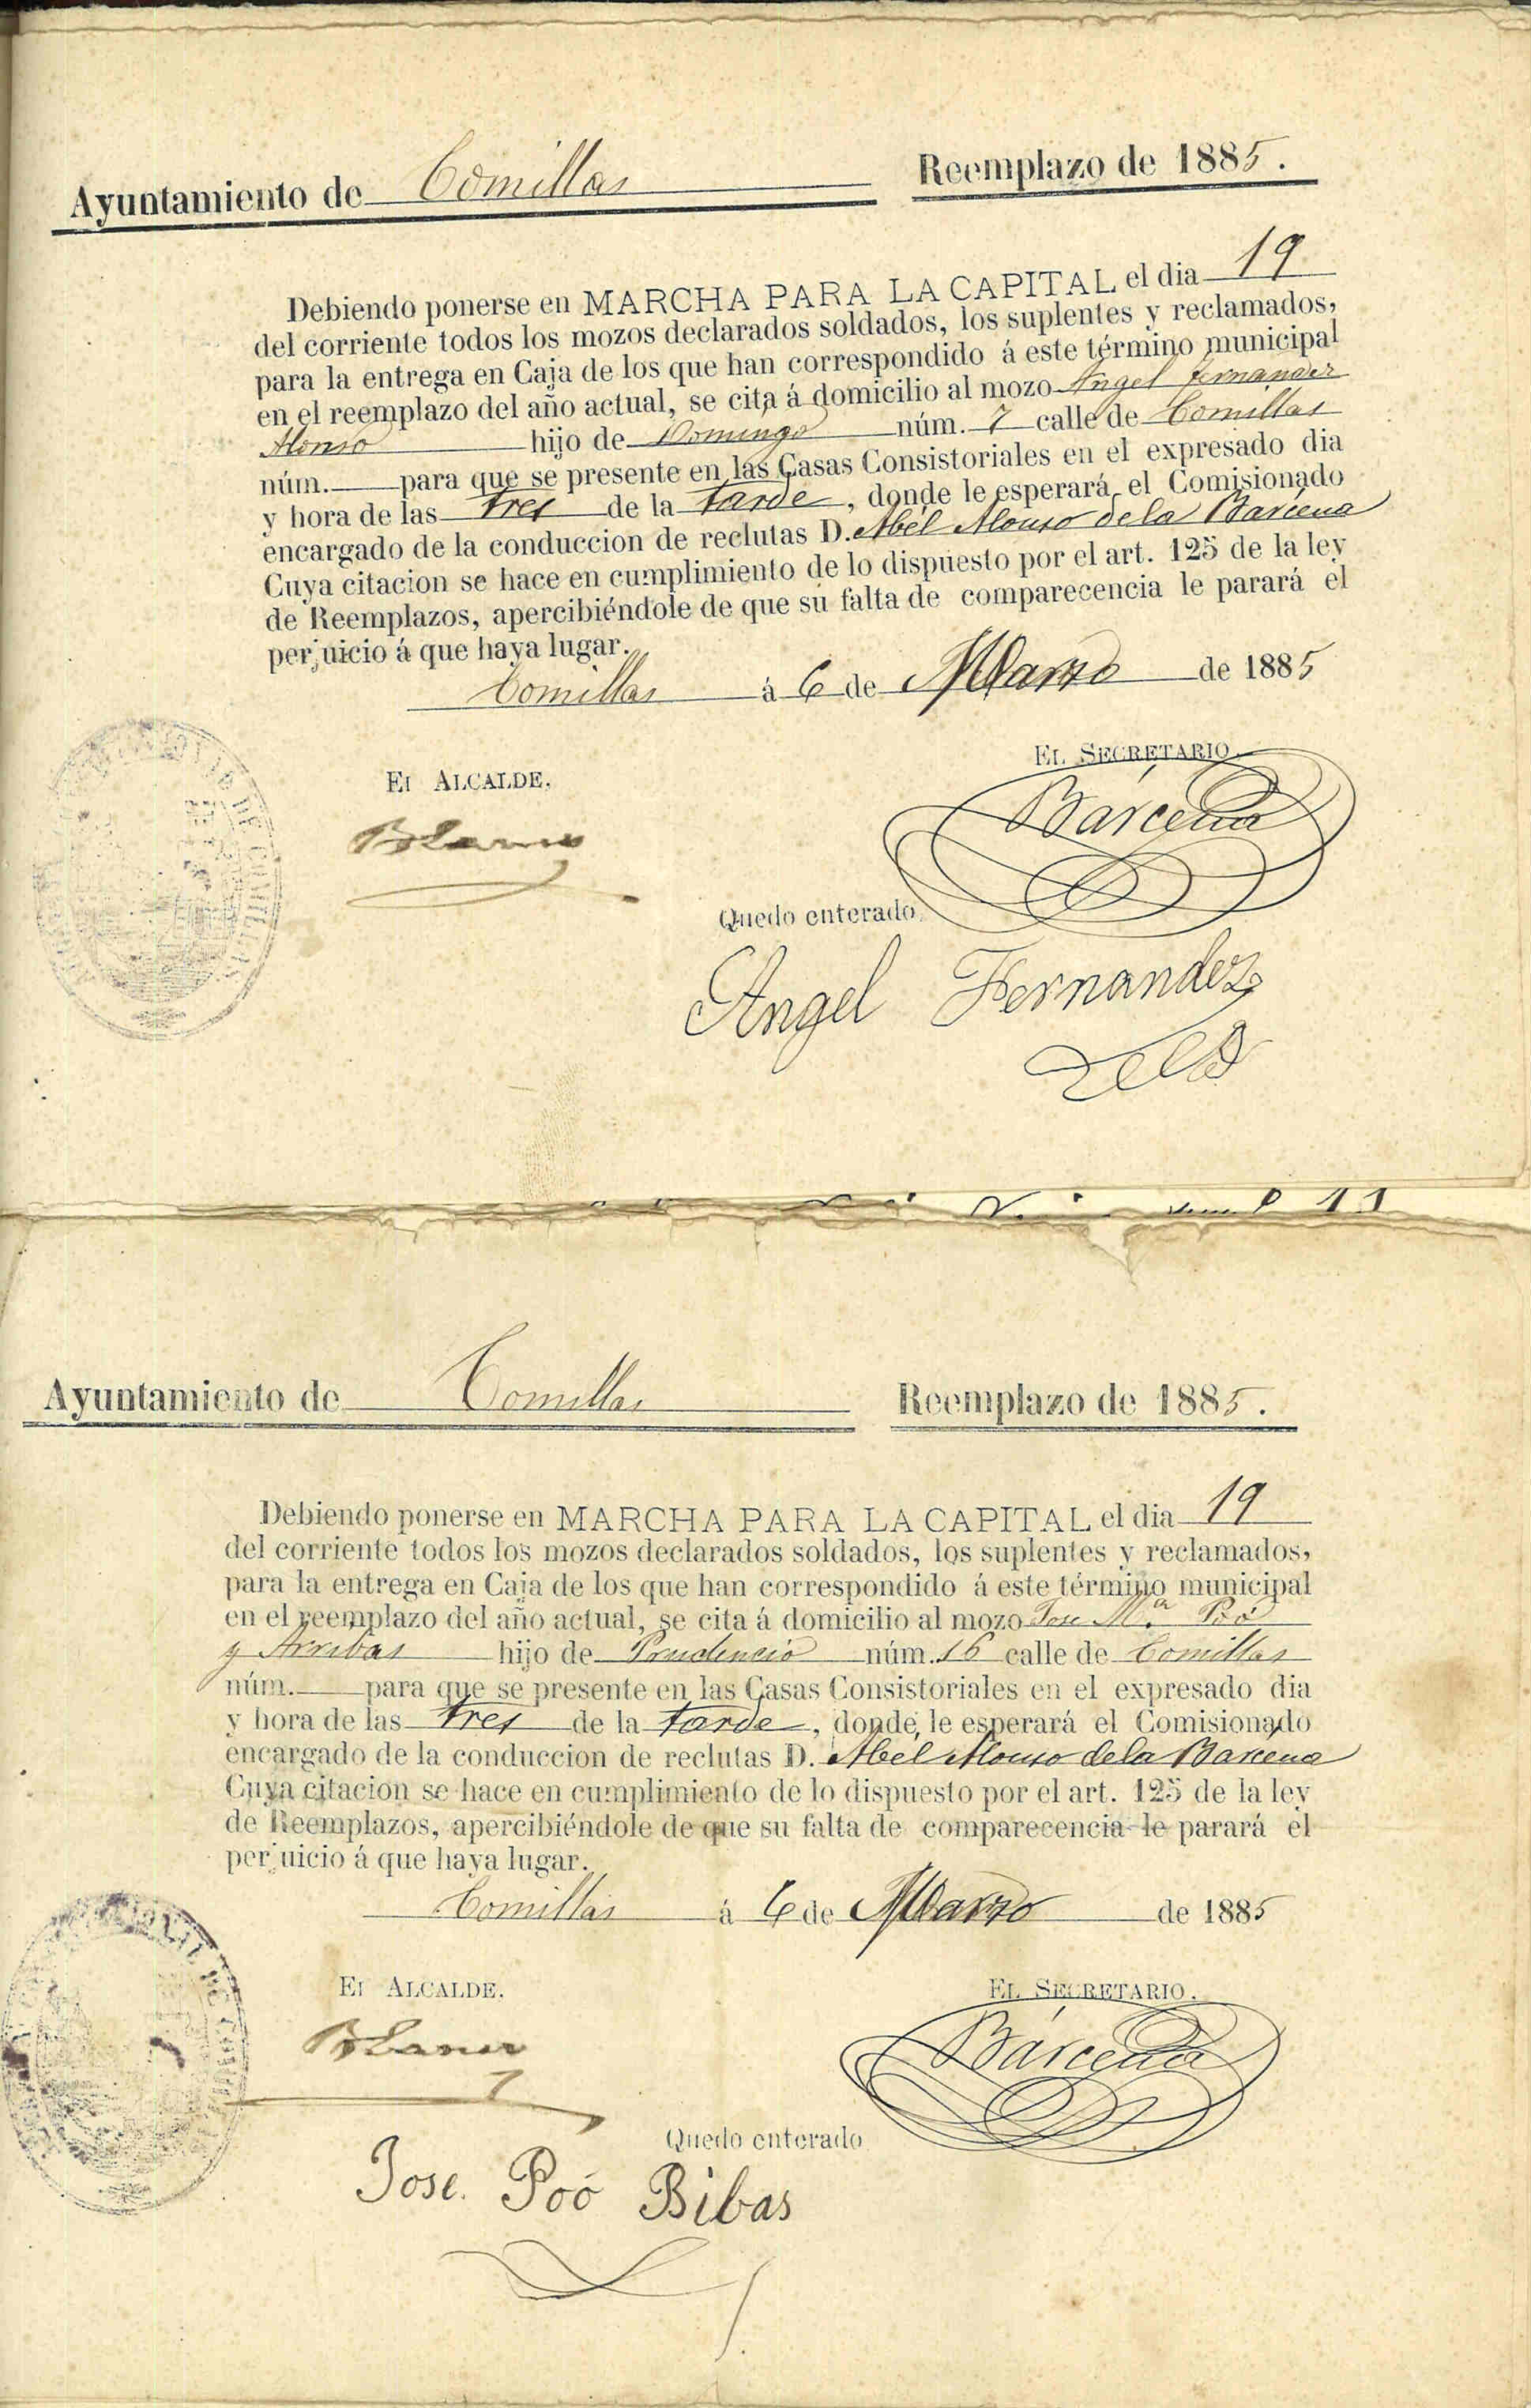 Ayuntamiento de Comillas Reemplazo de 1885.
Debiendo ponerse en MARCHA PARA LA CAPITAL el dia 19
del corriente todos los mozos declarados soldados, los suplentes y reclamados,
para la entrega en Caja de los que han correspondido á este término municipal
en el reemplazo del año actual, se cita á domicilio al mozo Angel Fernandez
Alonso hijo de Domingo núm. 7 calle de Comillas
núm. para que se presente en las Casas Consistoriales en el expresado dia
y hora de las tres de la tarde, donde le esperará el Comisionado
encargado de la conduccion de reclutas D. Abél Alonso de la Bárcena
Cuya citacion se hace en cumplimiento de lo dispuesto por el art. 125 de la ley
de Reemplazos, apercibiéndole de que su falta de comparecencia le parará el
perjuicio á que haya lugar.
Comillas á 6 de Marzo de 1885
El ALCALDE.
EL SECRETARIO.
Bárcena
Quedo enterado.
Angel Fernandez
Ayuntamiento de Comillas Reemplazo de 1885.
Debiendo ponerse en MARCHA PARA LA CAPITAL el dia 19
del corriente todos los mozos declarados soldados, los suplentes y reclamados,
para la entrega en Caja de los que han correspondido á este término municipal
en el reemplazo del año actual, se cita á domicilio al mozo Jose Mª Poó
y Arribas hijo de Prudencio núm. 16 calle de Comillas
núm. para que se presente en las Casas Consistoriales en el expresado dia
y hora de las tres de la tarde, donde le esperará el Comisionado
encargado de la conduccion de reclutas D. Abél Alonso de la Bárcena
Cuya citacion se hace en cumplimiento de lo dispuesto por el art. 125 de la ley
de Reemplazos, apercibiéndole de que su falta de comparecencia le parará el
perjuicio á que haya lugar.
Comillas á 6 de Marzo de 1885
El ALCALDE.
EL SECRETARIO.
Bárcena
Quedo enterado
Jose. Poó Bibas